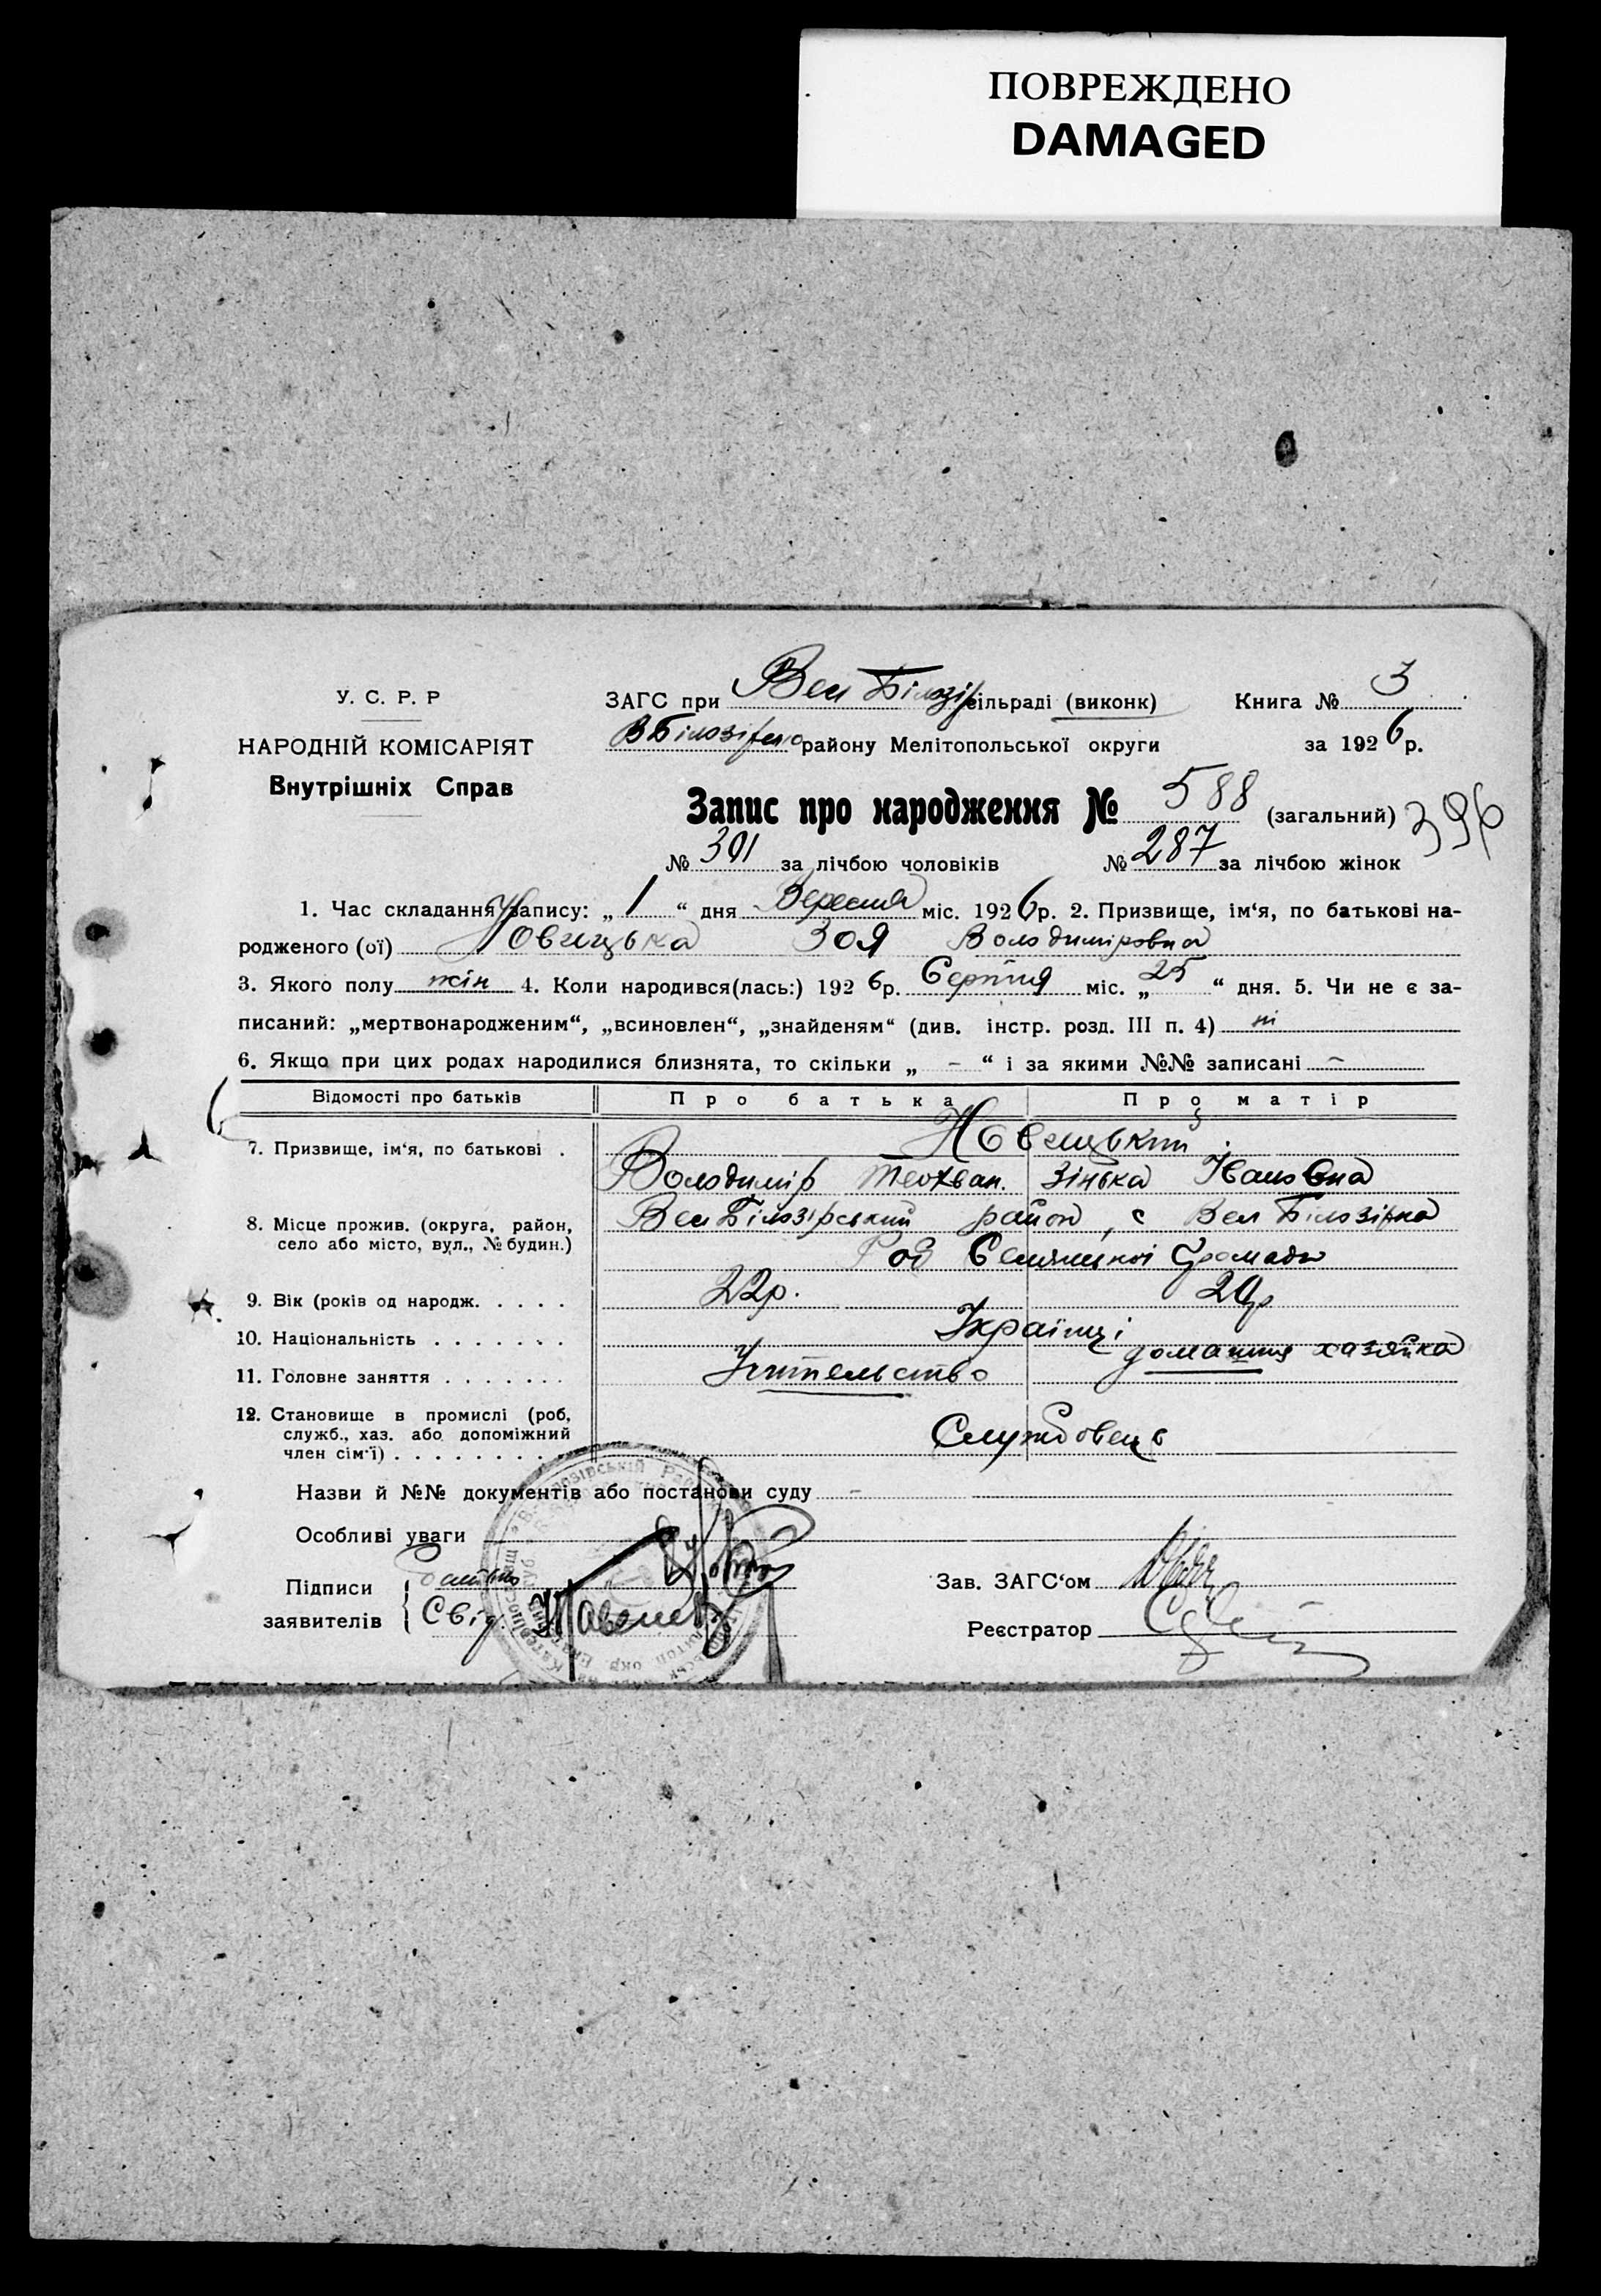 ПОВРЕЖДЕНО
DAMAGED
У. С. Р. Р
НАРОДНІЙ КОМІСАРІЯТ
Внутрішніх Справ
ЗАГС при Вел Білозір сільраді (виконк) Книга № 3
В Білозірсько району Мелітопольської округи за 1926 р.
Запис про народження № 588 (загальний) 396
№ 301 за лічбою чоловіків № 287 за лічбою жінок
1. Час складання запису: „ 1 “ дня Вересня міс. 1926 р. 2. Призвище, ім‘я, по батькові на-
родженого (ої) Новицька Зоя Володиміровна
3. Якого полу жін 4. Коли народився(лась:) 1926 р. Серпня міс. „ 25 “ дня. 5. Чи не є за-
писаний: „мертвонародженим“, „всиновлен“, „знайденям“ (див. інстр. розд. III п. 4) ні
6. Якщо при цих родах народилися близнята, то скільки „ - “ і за якими №№ записані -
Відомості про батьків Про батька Про матір
7. Призвище, ім‘я, по батькові . Новицький
Володимір Теохван. Зінька Івановна
8. Місце прожив. (округа, район, село або місто, вул., № будин.) Вел Білозірський район, с Вел Білозірка
Семяницкої Громади
9. Вік (років од народж. . . . . 22р. 20р
10. Національність . . . . . . . Українці
11. Головне заняття . . . . . . . Учительство домашня хазяйка
12. Становище в промислі (роб, служб., хаз. або допоміжний член сім‘ї) . . . . . . . . . Службовець
Назви й №№ документів або постанови суду -
Особливі уваги
Підписи заявителів { батько
Свід.
Зав. ЗАГС‘ом
Реєстратор